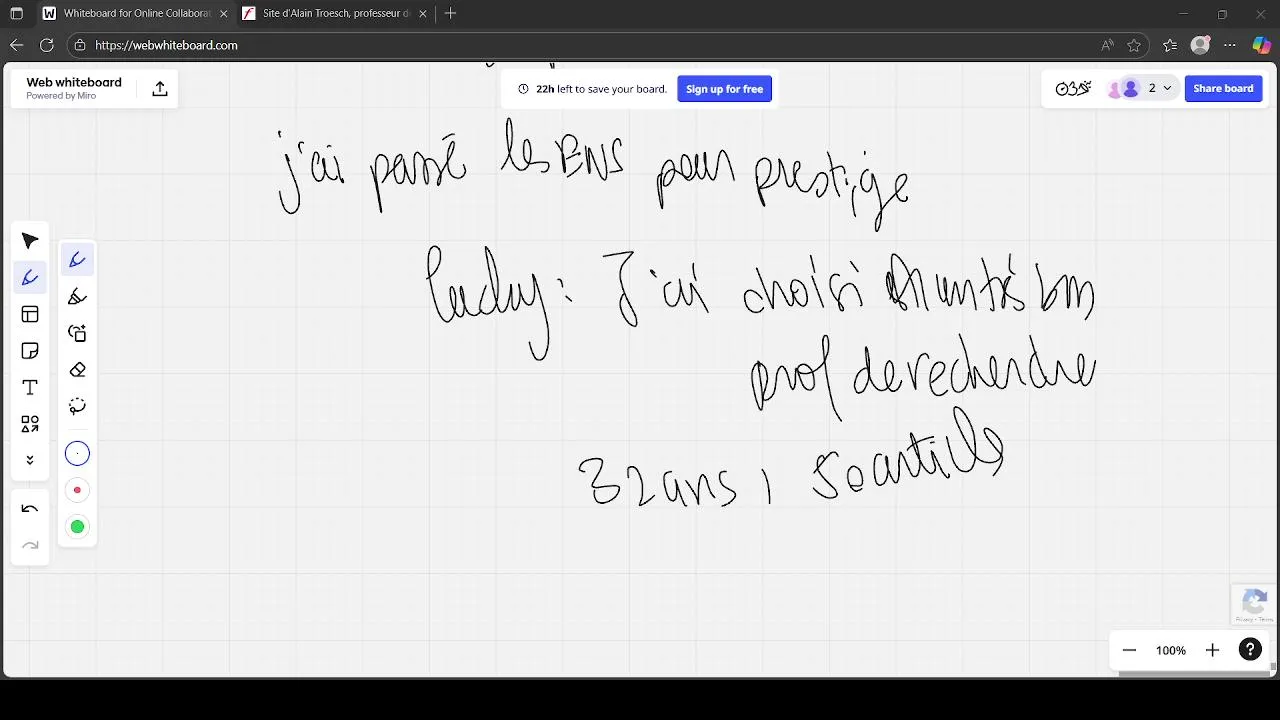 Whiteboard for Online Collaborat
Site d'Alain Troesch, professeur d
https://webwhiteboard.com
Web whiteboard
Powered by Miro
22h left to save your board.
Sign up for free
2
Share board
j'ai passé les ENS pour prestige
lucky: J'ai choisi un très bon
prof de recherche
32 ans, 50 article
Privacy - Terms
100%